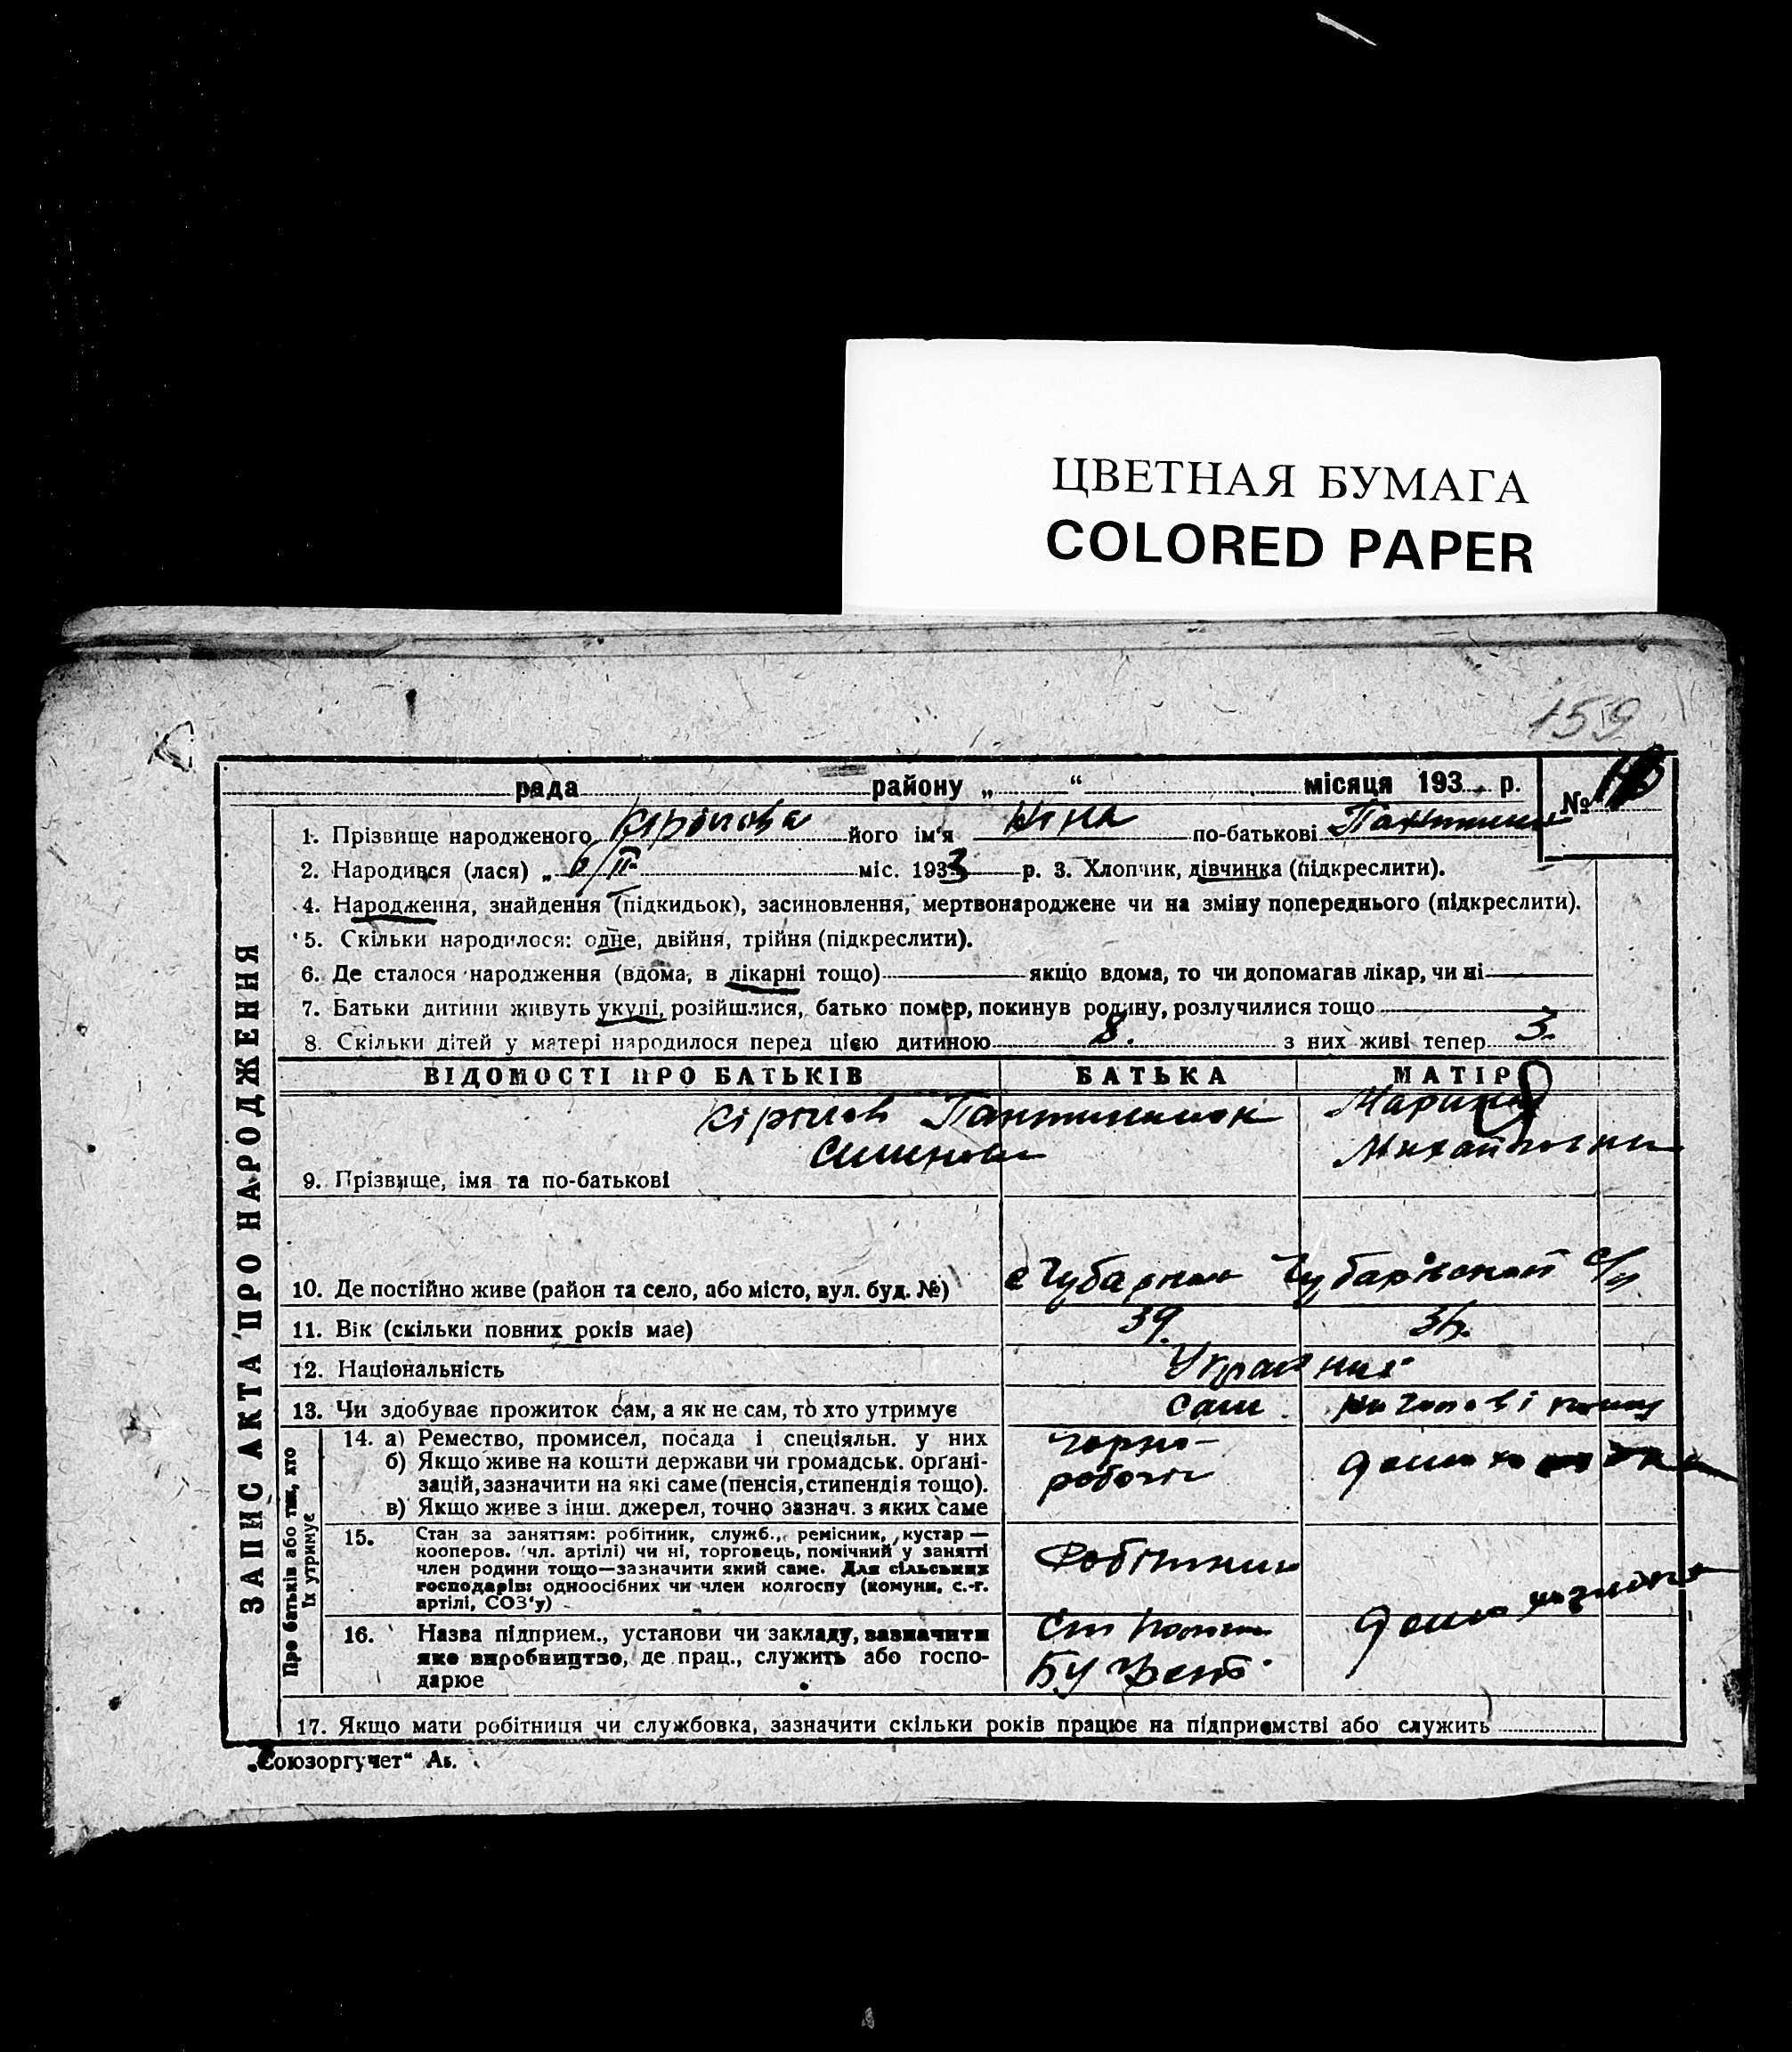 ЦВЕТНАЯ БУМАГА
COLORED PAPER
159
рада району „ “ місяця 193 р. №
1. Прізвище народженого його ім'я Ніна по-батькові
2. Народився (лася) „ 6/II міс. 1933 р. 3. Хлопчик, дівчинка (підкреслити).
4. Народження, знайдення (підкидьок), засиновлення, мертвонароджене чи на зміну попереднього (підкреслити).
5. Скільки народилося: одне, двійня, трійня (підкреслити).
6. Де сталося народження (вдома, в лікарні тощо) якщо вдома, то чи допомагав лікар, чи ні
7. Батьки дитини живуть укупі, розійшлися, батько помер, покинув родину, розлучилися тощо
8. Скільки дітей у матері народилося перед цією дитиною 8. з них живі тепер 3.
ВІДОМОСТІ ПРО БАТЬКІВ БАТЬКА МАТІР
Марина
Михайловна
9. Прізвище, імя та по-батькові
10. Де постійно живе (район та село, або місто, вул. буд. №)
11. Вік (скільки повних років має) 39.
12. Національність
13. Чи здобуває прожиток сам, а як не сам, то хто утримує сам
14. а) Ремество, промисел, посада і спеціяльн. у них чорно-
б) Якщо живе на кошти держави чи громадськ. орґані- робочи
зацій, зазначити на які саме (пенсія, стипендія тощо).
в) Якщо живе з інш. джерел, точно зазнач. з яких саме
15. Стан за заняттям: робітник, служб., ремісник, кустар —
кооперов. (чл. артілі) чи ні, торговець, помічний у занятті
член родини тощо—зазначити який саме. Для сільських
господарів: одноосібних чи член колгоспу (комуни, с.-г.
артілі, СОЗ'у)
Робітник
16. Назва підприєм., установи чи закладу, зазначити
яке виробництво, де прац., служить або госпо-
дарює
17. Якщо мати робітниця чи службовка, зазначити скільки років працює на підприємстві або служить
ЗАПИС АКТА ПРО НАРОДЖЕННЯ
Про батьків або тих, хто
їх утримує
„Союзоргучет“